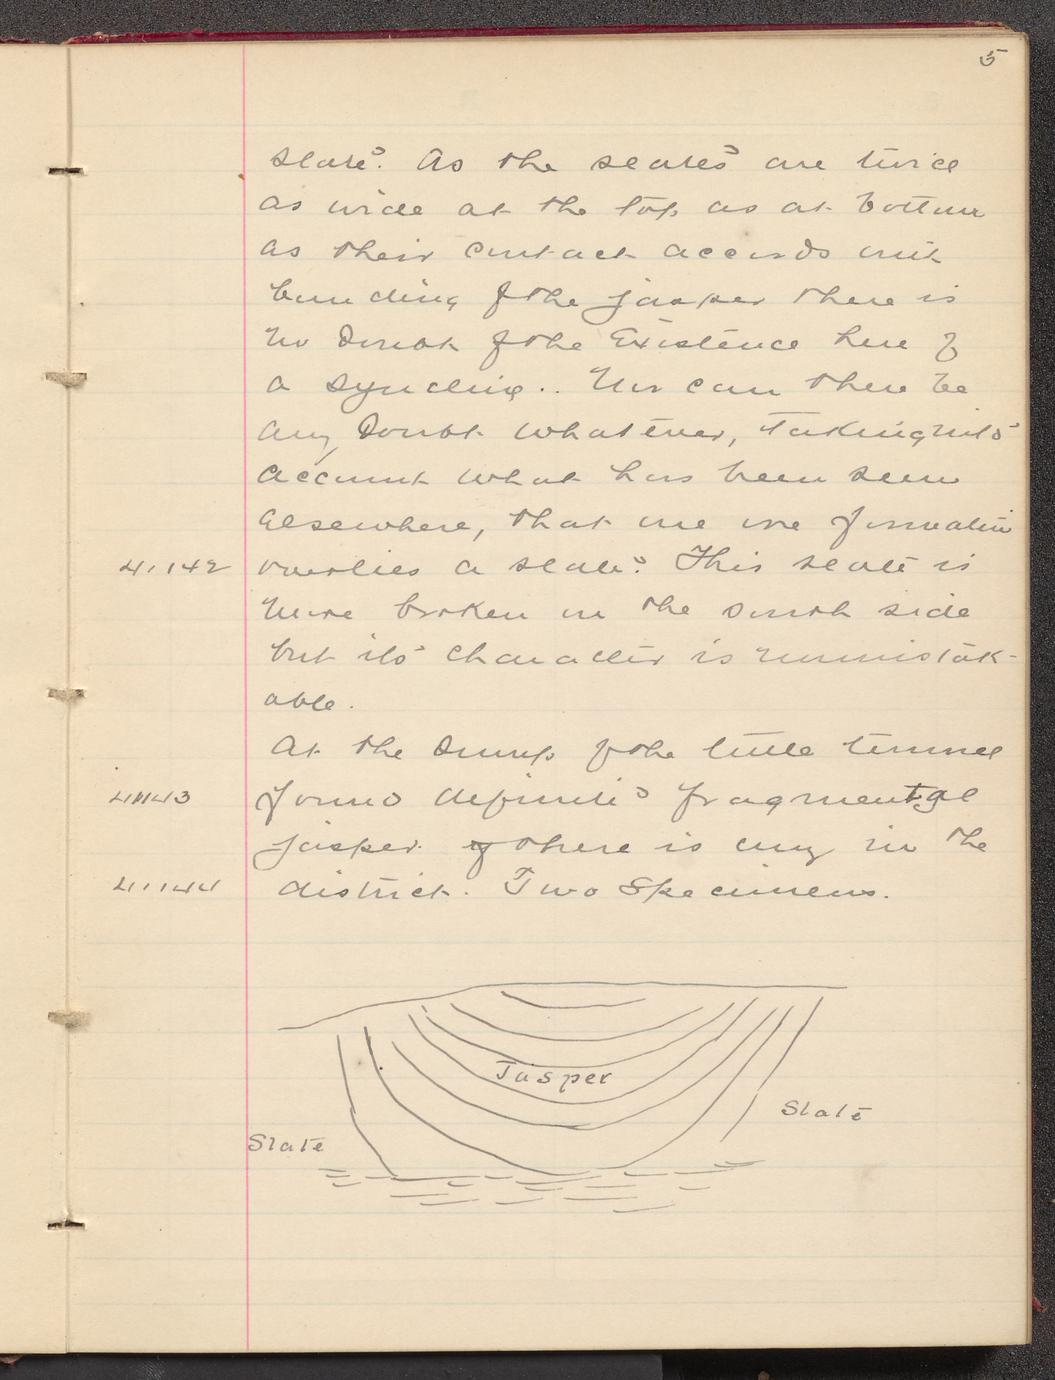 5
slate. As the slates are twice
as wide at the top as at bottom
as their contact accords with
bending of the jasper there is
no doubt of the Existence here of
a syncline. Nor can there be
any doubt whatever, taking into
account what has been seen
elsewhere, that one ore formation
41142 overlies a slate. This slate is
more broken on the south side
but its character is unmistak-
able.
At the dump of the little tunnel
41143 found definite fragmental
jasper if there is any in the
41144 district. Two Specimens.
Jasper
Slate
Slate